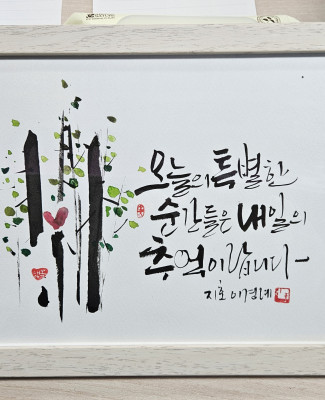 오늘의 특별한
순간들은 내일의
추억이랍니다
지호 이경례